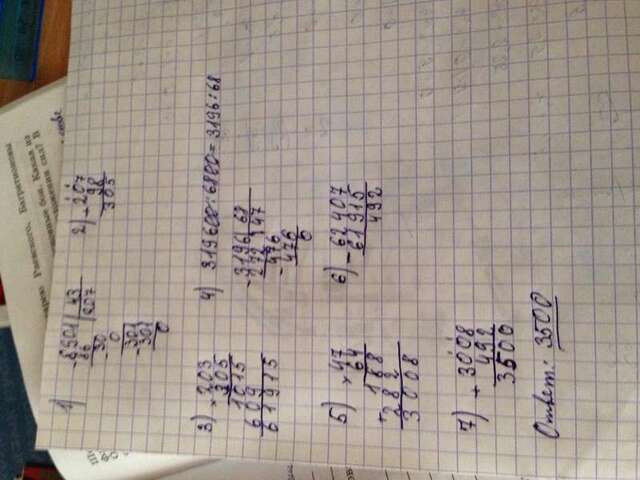 1) -8901 | 43
86 | 207
30
0
-301
301
0
2) +207
98
305
3) ×203
305
1015
609
61915
4) 319600:6800=3196:68
-3196 | 68
272 | 47
-476
476
0
5) ×47
64
+188
282
3008
6) -62407
61915
492
7) +3008
492
3500
Ответ: 3500